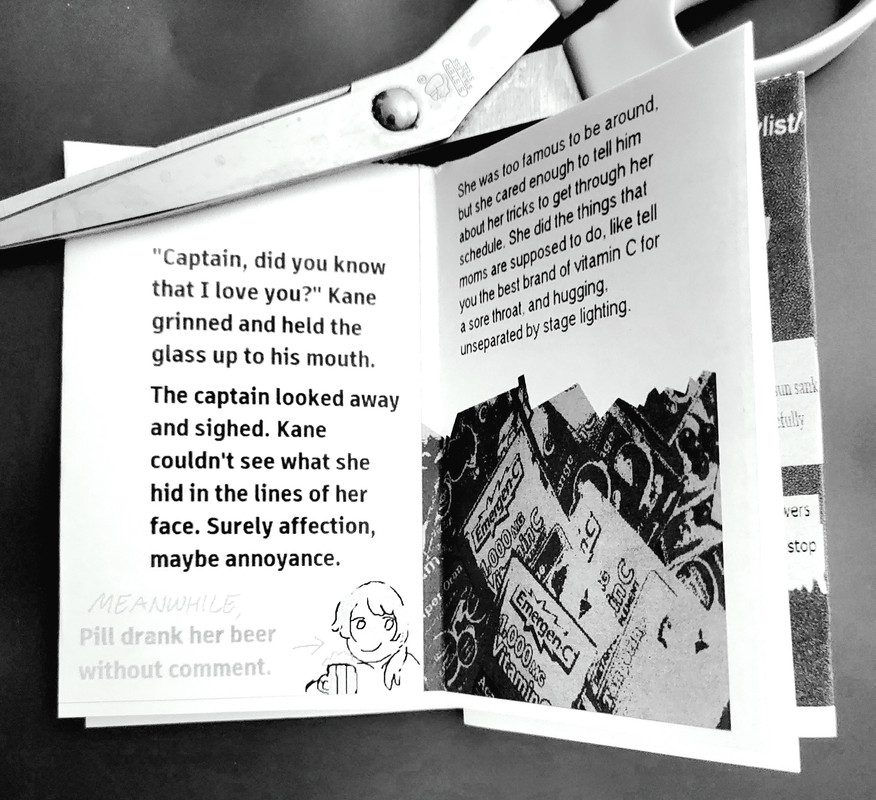 "Captain, did you know
that I love you?" Kane
grinned and held the
glass up to his mouth.
The captain looked away
and sighed. Kane
couldn't see what she
hid in the lines of her
face. Surely affection,
maybe annoyance.
MEANWHILE,
Pill drank her beer
without comment.
She was too famous to be around,
but she cared enough to tell him
about her tricks to get through her
schedule. She did the things that
moms are supposed to do, like tell
you the best brand of vitamin C for
a sore throat, and hugging,
unseparated by stage lighting.
Emergen-C
1,000MG
Vitamin C
Emergen-C
1,000MG
Vitamin C
list/
sank
stop